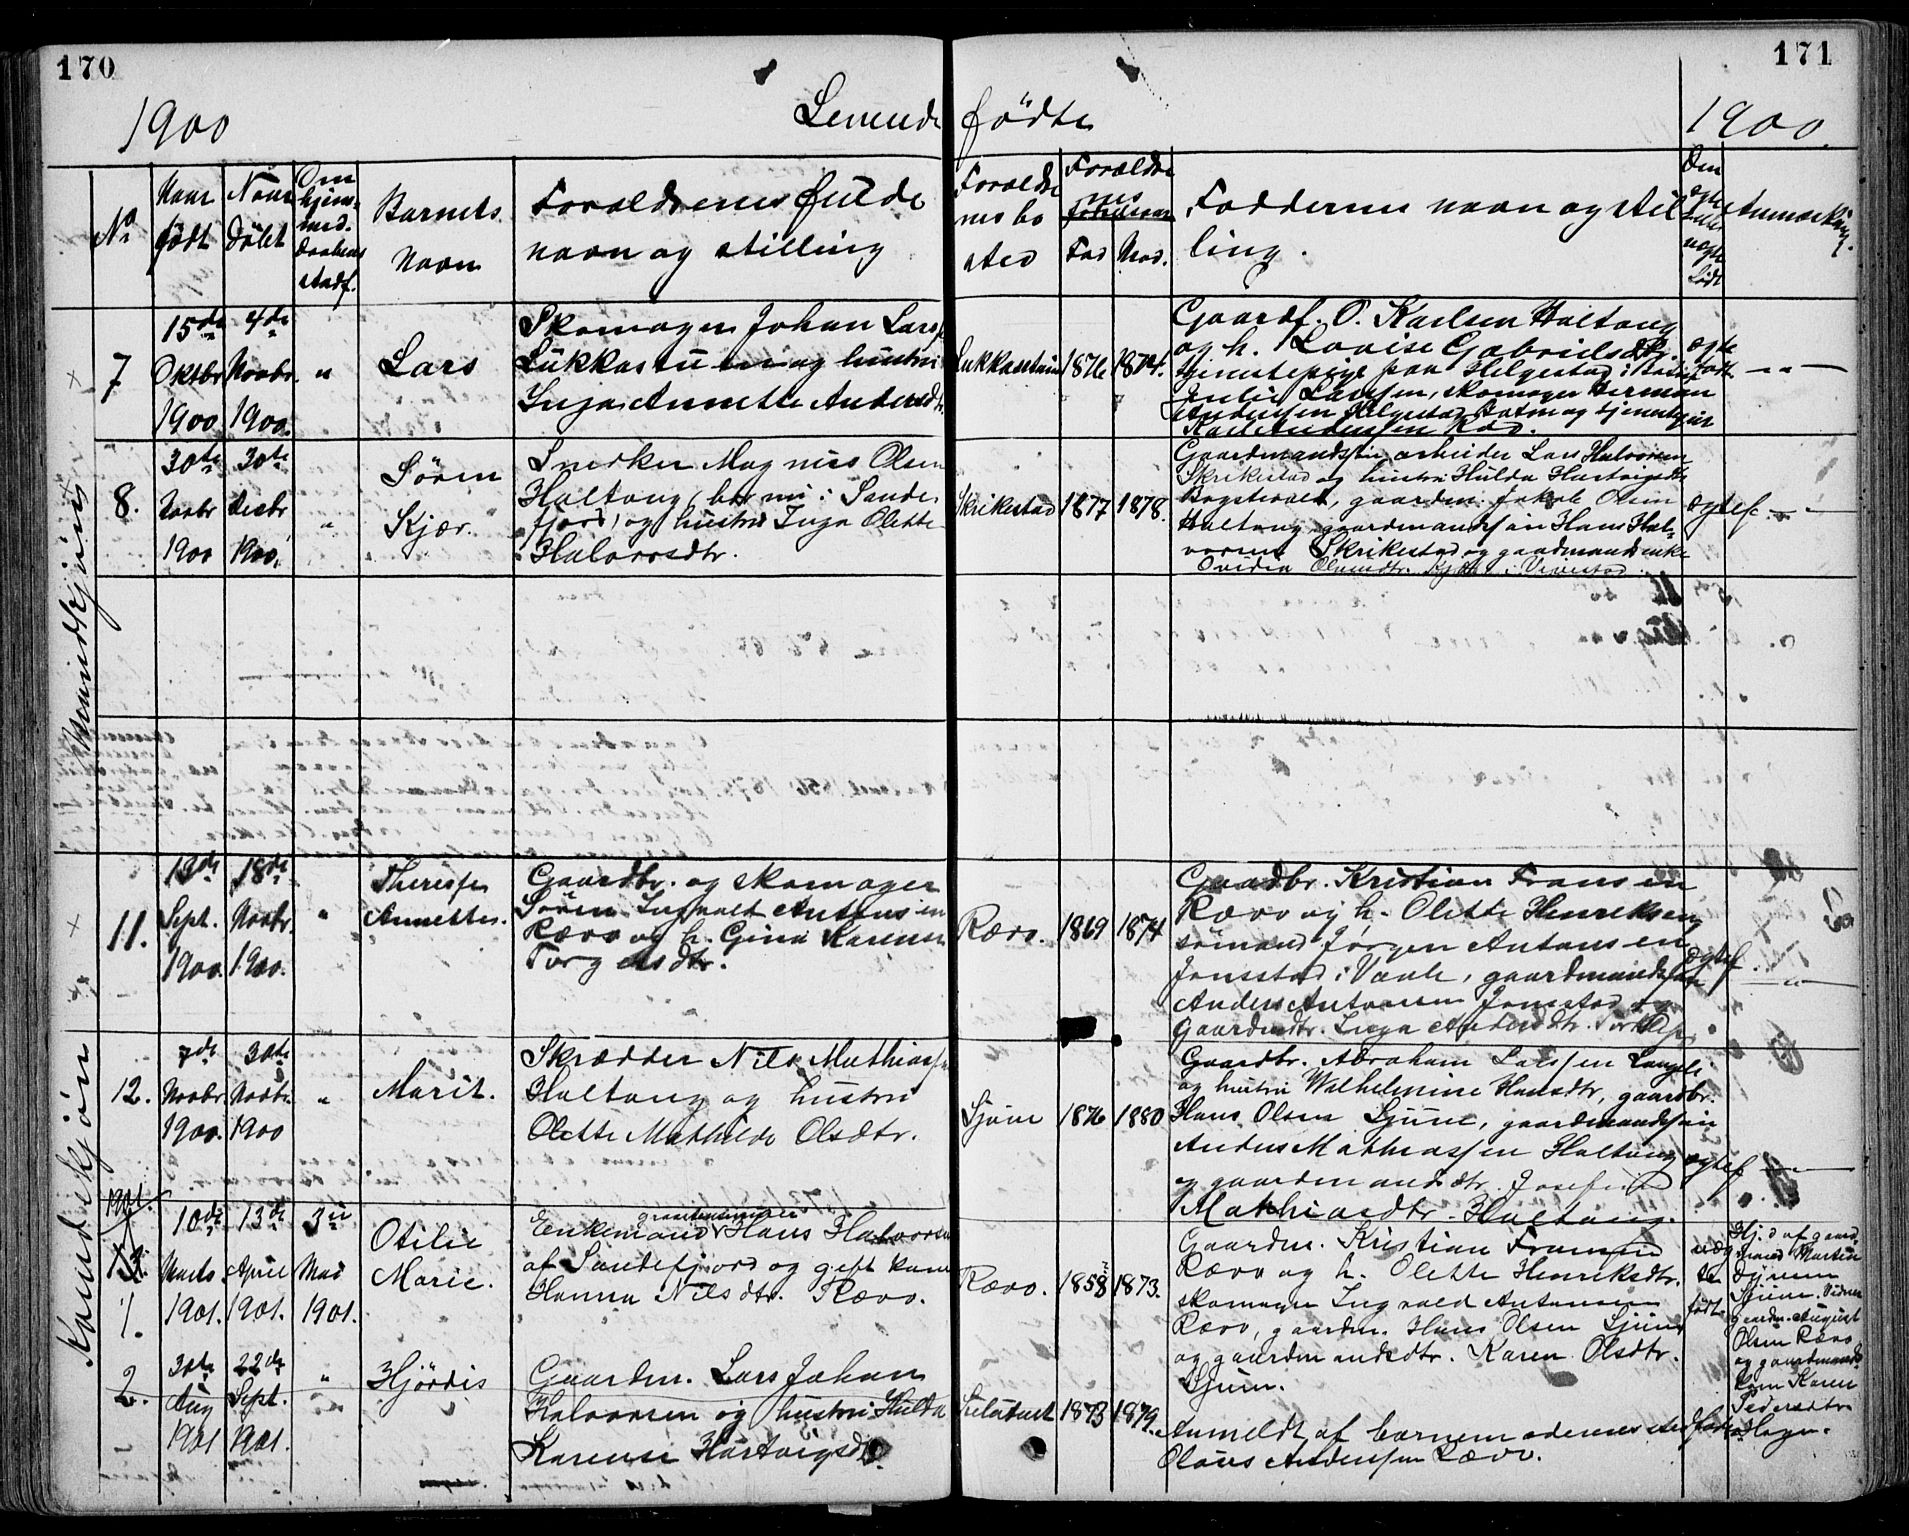 170
171
1900
Levende
fødte
1900
No
Naar født
Naar døbt
Om hjemmed. daabens stadf.
Barnets Navn
Forældrenes fulde navn og stilling
Forældrenes bosted
Forældrenes fødselsaar
Fad Mod.
Faddernes navn og stilling.
Om ægte eller uægte født
Anmærkning.
Mandkjøn
7
15de Oktbr. 1900
4de Novbr. 1900.
"
Lars
Skomager Johan Larss.
Lukkastuen og hustru
Inga Annette Andersdtr.
Lukkastuen
1876
1874.
Gaardf. O. Karlsen Haltong
og h. Lovise Gabrielsdtr.
tjenstepige paa Helgestad i Botne
Julie Larssen, skomager Herman
Andersen Helgestad Botne og tjenestepige
Karl Anderssen Ræv.
ægte født.
— " —
8.
30te Novbr 1900
30te Decbr 1900.
"
Søren
Kjær.
Snekker Magnus Olsen
Haltong (bor nu i Sande-
fjord) og hustru Inga Olette
Halvorsdtr.
Skrikestad
1877
1878.
Gaardmandsøn, arbeider Lars Halvorsen
Skrikestad og hustru Hulda Hartvigsdtr.
gaardm. Jakob Olsen
Haltong, gaardmandsøn Hans Hal-
vorsen Skrikestad og gaardmandsenke
Ovidia Olsensdtr. i Vivestad.
ægtef.
— " —
Kvindekjøn
11.
13de Sept. 1900.
18de Novbr. 1900.
"
Theresse
Annette.
Gaardbr. og skomager
Søren Ingvald Antonsen
Rævo og h. Gina Karense
Torgersdtr.
Rævo.
1869
1874
Gaardbr. Kristian Fransen
Rævo og h. Olette Henriksen,
sømand Jørgen Antonsen
Jonestad i Vaale, gaardmandsøn
Anders Antonsen Jonestad og
Gaardmdtr. Inga Andersdtr.
ægtef.
— " —
12.
7de Novbr. 1900.
30te Novbr. 1900
"
Marit.
Skrædder Nils Mathiass.
Haltong og hustru
Olette Mathilde Olsdtr.
Sjuve
1876
1880
Gaardbr. Abraham Larssen Langele
og hustru Walhelmine Hansdtr, gaardbr.
Hans Olsen Sjuve, gaardmandsøn
Anders Mathiassen Haltong
og gaardmandsdtr. Josefine
Mathiasdtr. Haltong.
ægtef.
— " —
1901.
1.
10de Marts 1901.
13de April 1901.
3die Mad 1901.
Otilie
Marie.
gaardmand
Enkemand Hans Halvorsen
af Sandefjord og gift kone
Hanna Nilsdtr. Rævo.
Rævo.
1858
1873.
Gaardm. Kristian Fransen
Rævo og h. Olette Henriksdtr.
skomager Ingvald Antonsen
Rævo, gaardm. Hans Olsen Sjuve
og gaardmandsdtr. Karen Olsdtr.
Sjuve.
uægte født
Hj. d. af gaard-
mand Martin
Sjuve. Vidner
gaardm. August
Olsen Rævo
og gaardmands
kone Karen
Pedersdtr.
Hagen.
2.
30te Aug 1901
22de Sept. 1901.
"
Hjördis
Gaardm. Lars Johan
Halvorsen og hustru Hulda
Karense Hartvigsdtr.
1873
1879.
Anmeldt af barnem ødernes sted
Olaus Anderssen Rævo.